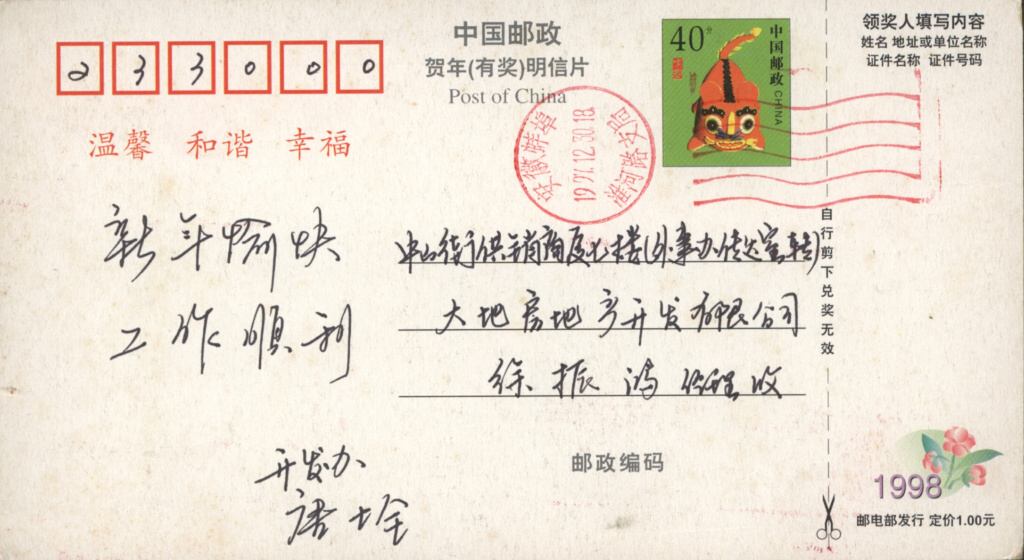 233000
温馨 和谐 幸福
中国邮政
贺年(有奖)明信片
Post of China
40分
中国邮政 CHINA
领奖人填写内容
姓名 地址或单位名称
证件名称 证件号码
安徽蚌埠
1997.12.30.18
新年愉快
工作顺利
中山街供销商厦七楼(外事办传达室转)
大地房地产开发有限公司
徐振鸿经理收
开发办
自行剪下兑奖无效
邮政编码
1998
邮电部发行 定价1.00元